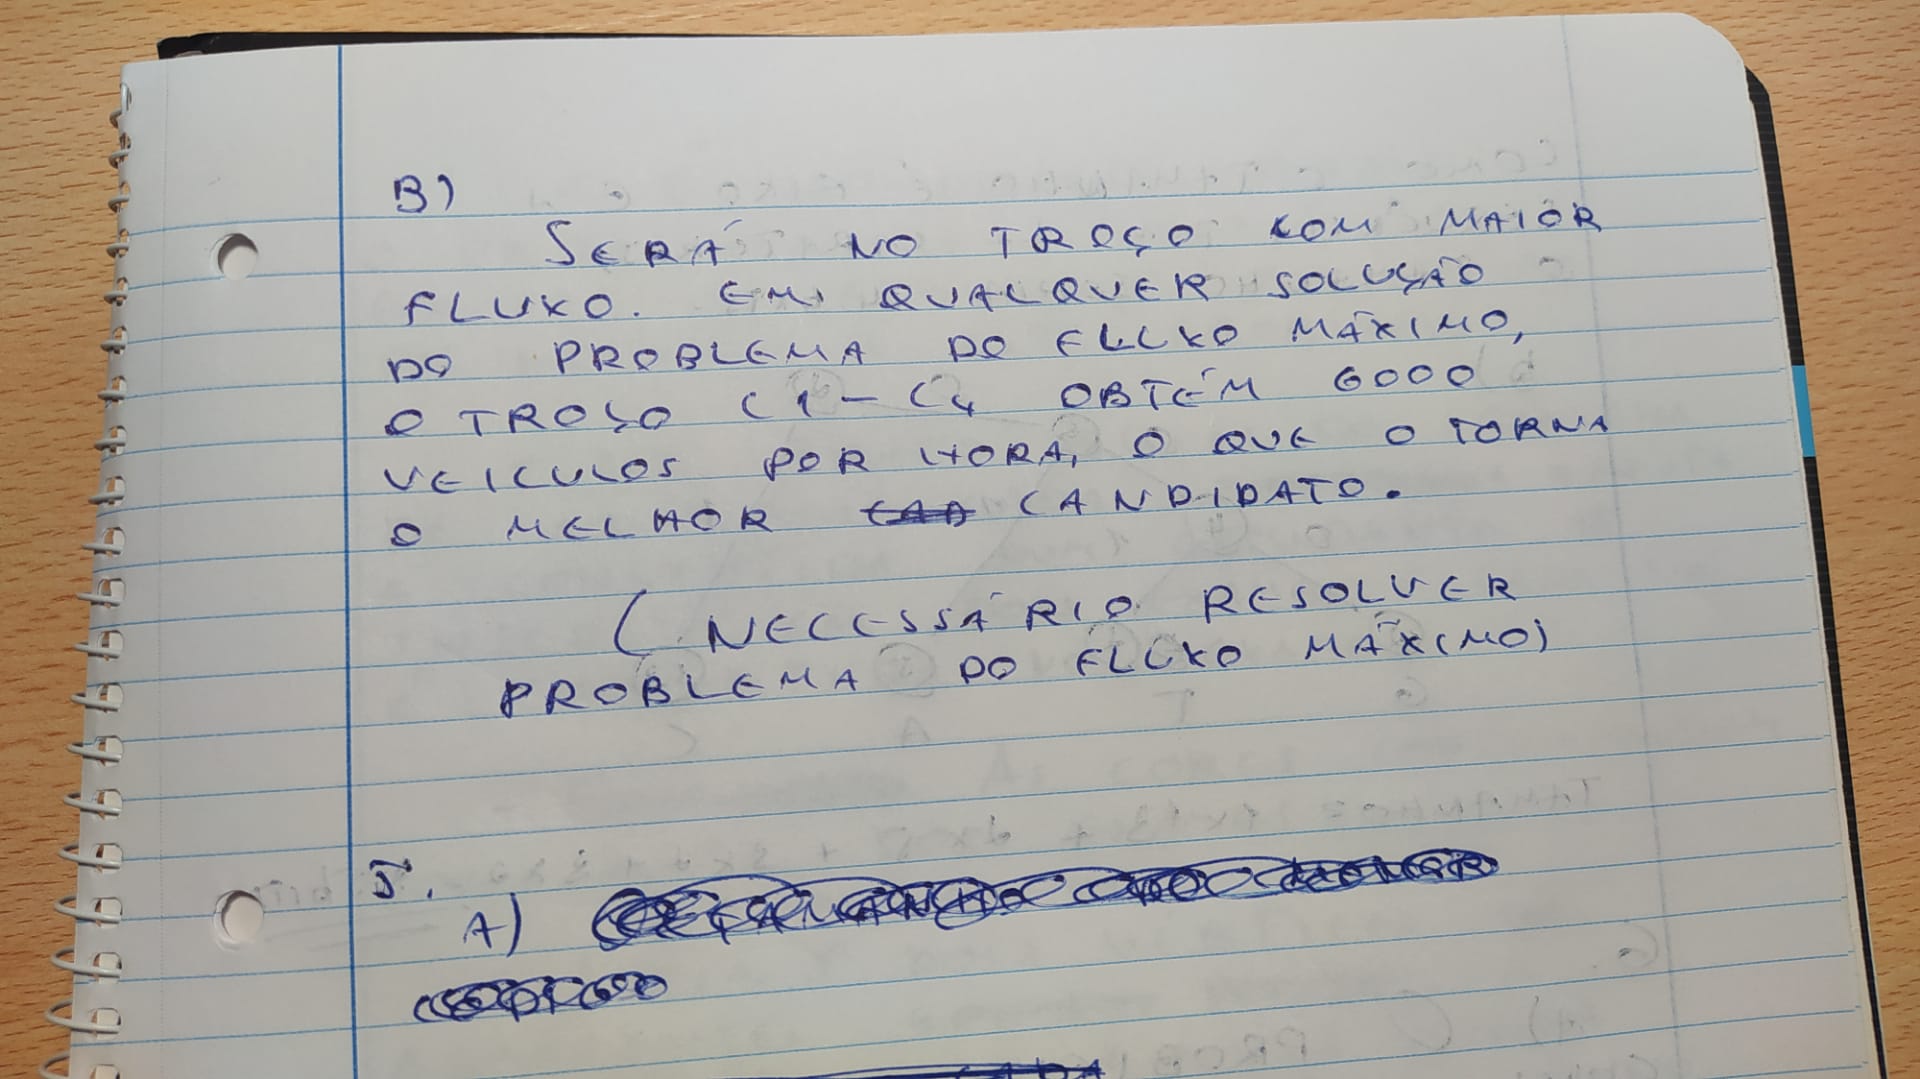 B)
SERÁ NO TROÇO COM MAIOR
FLUXO. EM QUALQUER SOLUÇÃO
DO PROBLEMA DO FLUXO MÁXIMO,
O TROÇO C1 - C4 OBTÉM 6000
VEICULOS POR HORA, O QUE O TORNA
O MELHOR CANDIDATO.
(NECESSÁRIO RESOLVER
PROBLEMA DO FLUXO MÁXIMO)
5.
A)